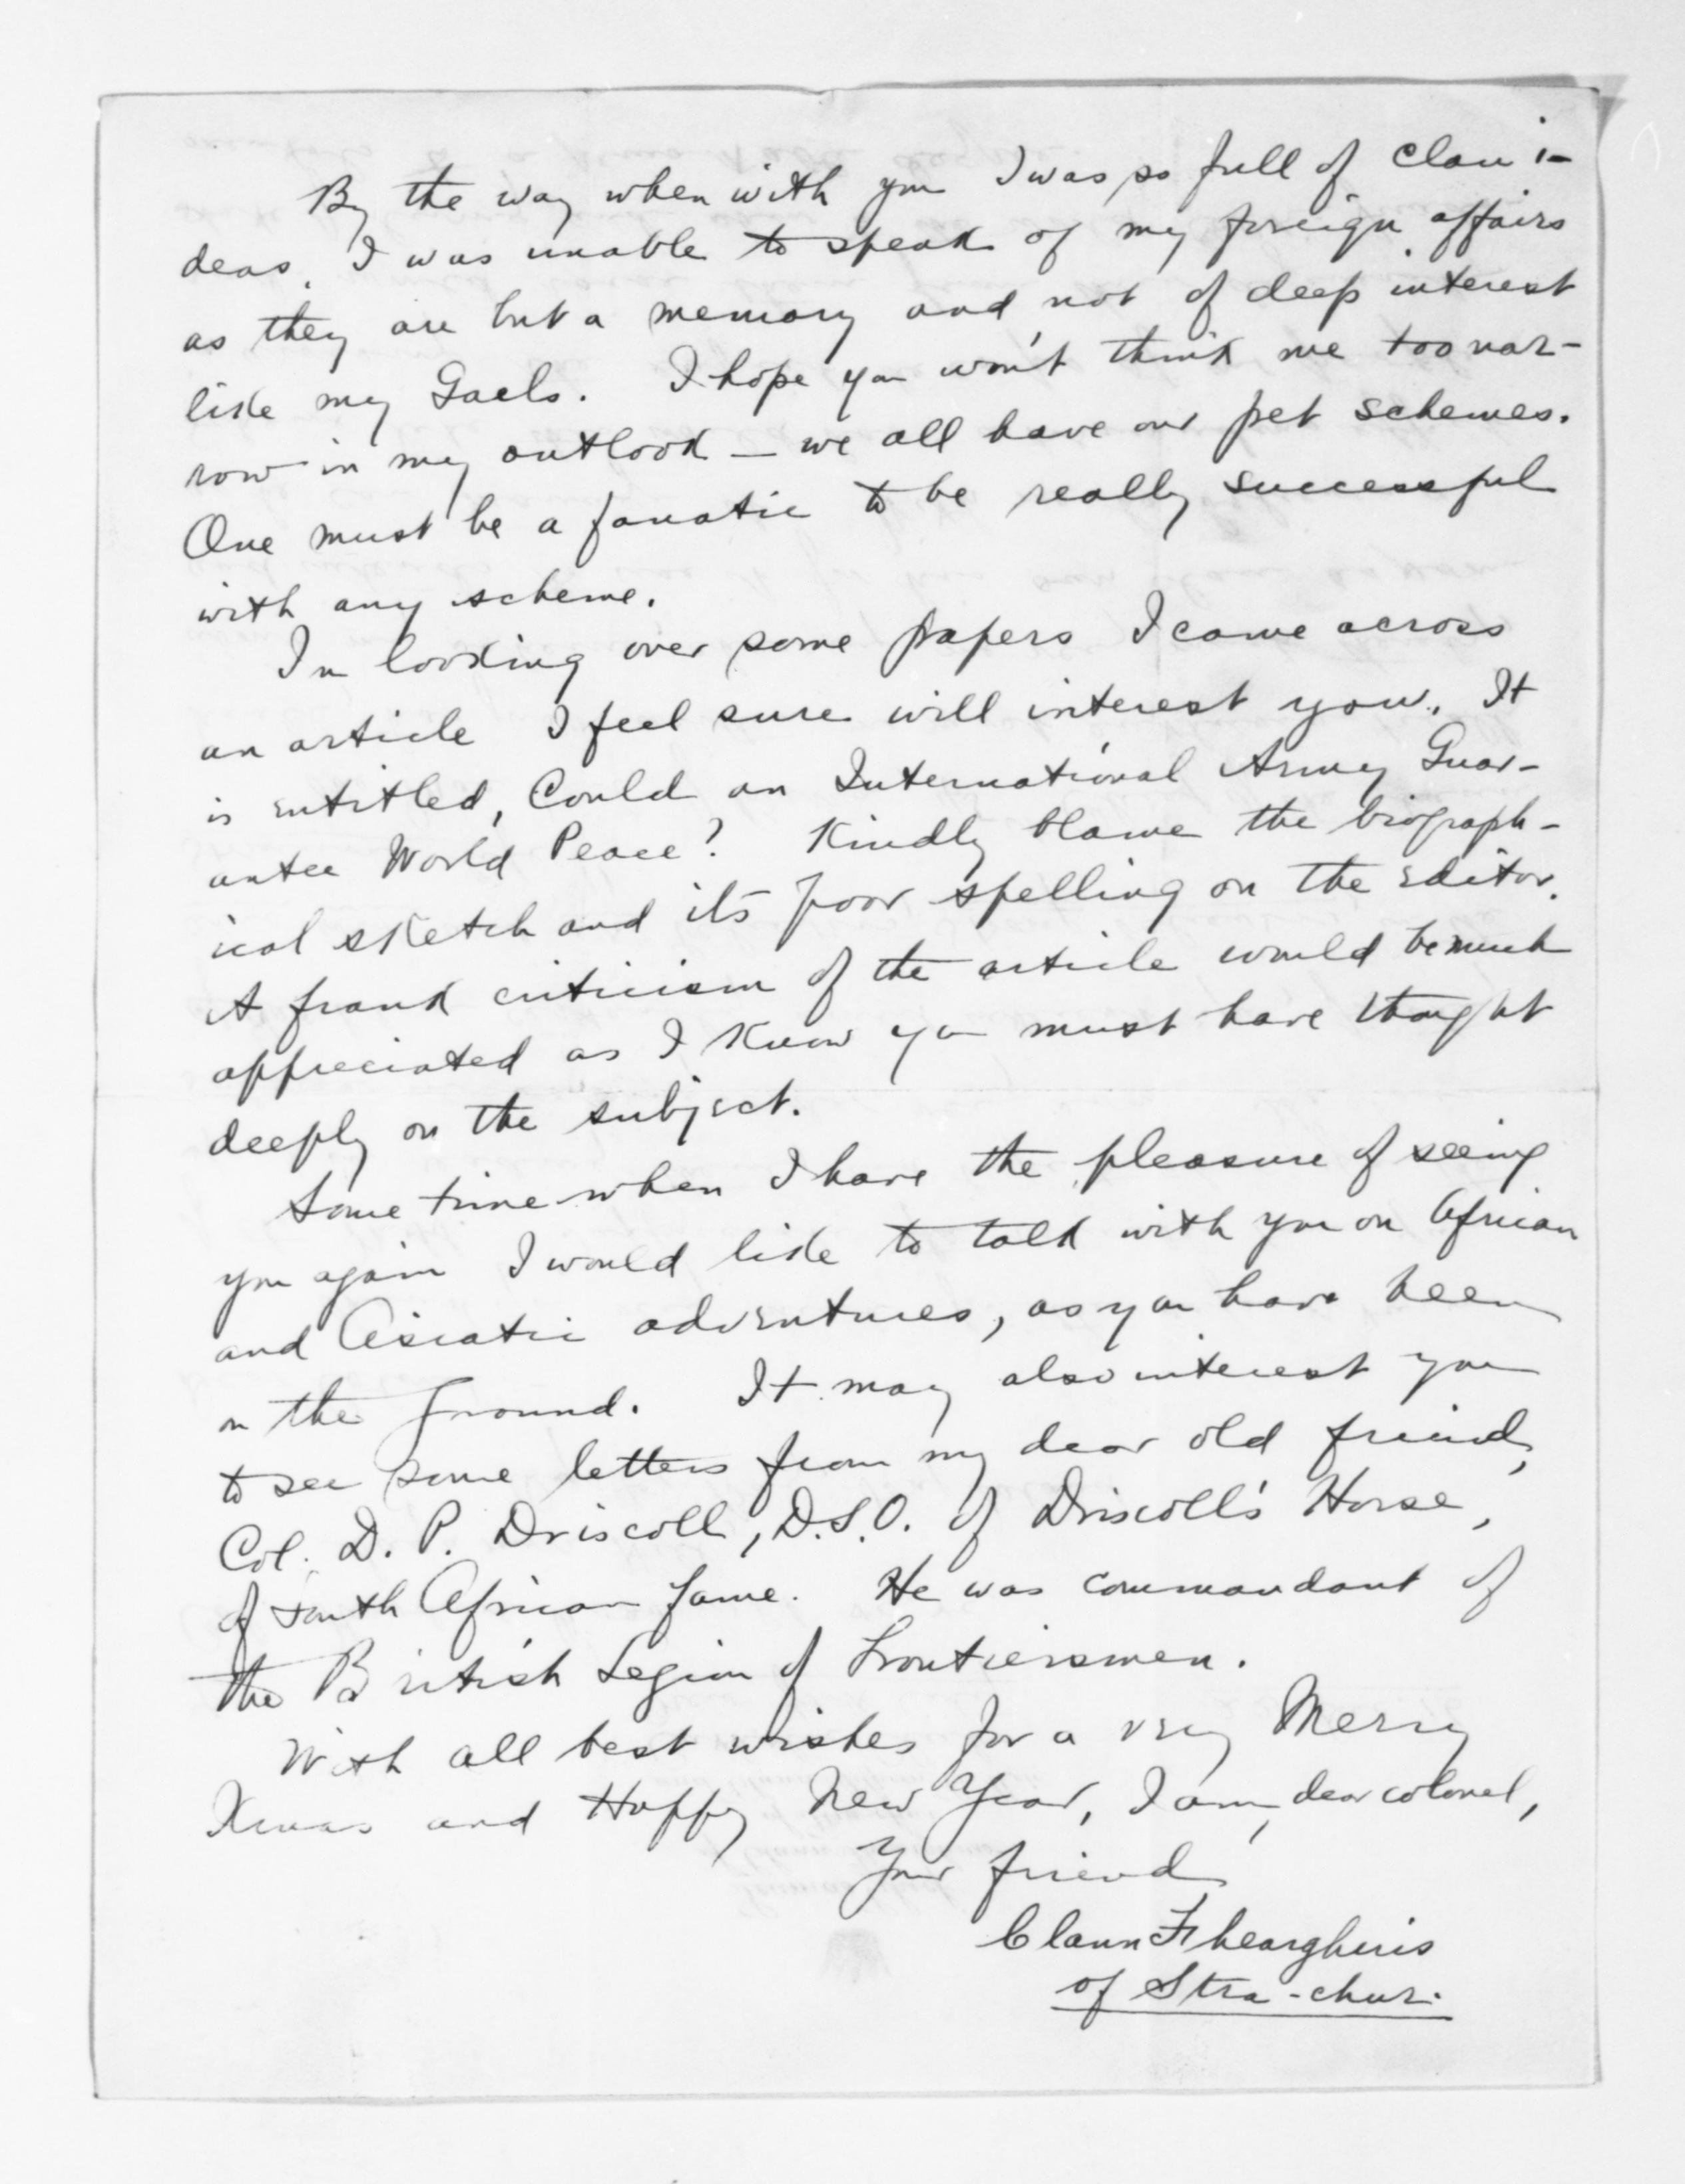 By the way when with you I was so full of Clan i-
deas, I was unable to speak of my foreign affairs
as they are but a memory and not of deep interest
like my Gaels. I hope you won't think me too nar-
row in my outlook — we all have our pet schemes.
One must be a fanatic to be really successful
with any scheme.
In looking over some papers I came across
an article I feel sure will interest you. It
is entitled, Could an International Army Guar-
antee World Peace? Kindly blame the biograph-
ical sketch and it's poor spelling on the editor.
A frank criticism of the article would be much
appreciated as I know you must have thought
deeply on the subject.
Some time when I have the pleasure of seeing
you again I would like to talk with you on African
and Asiatic adventures, as you have been
on the ground. It may also interest you
to see some letters from my dear old friend,
Col. D. P. Driscoll, D.S.O. of Driscoll's Horse,
of South African fame. He was commandant of
the British Legion of Frontiersmen.
With all best wishes for a very Merry
Xmas and Happy New Year, I am, dear colonel,
Your friend
Clann Fhearghuis
of Stra-chur.